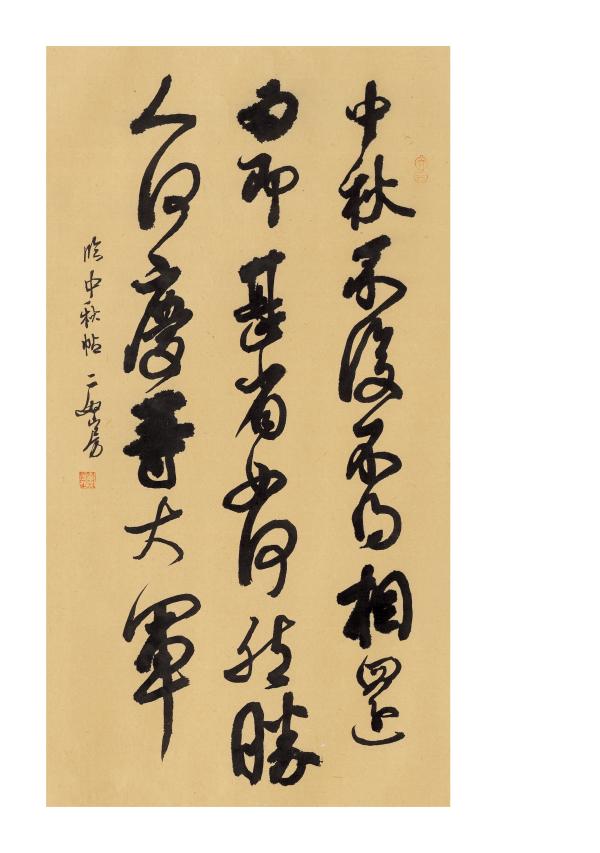 中秋不復不得相還
為即甚省如何然勝
人何慶等大軍
臨中秋帖 二如山房